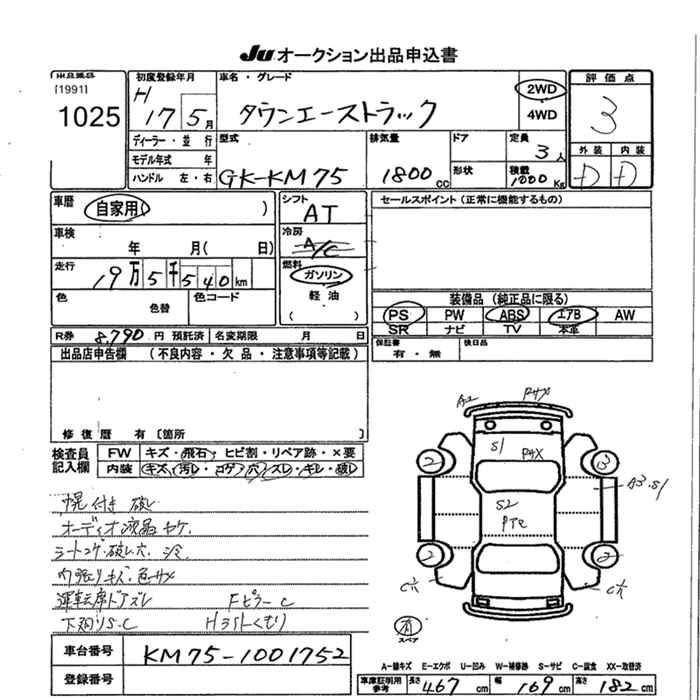 JU オークション出品申込書
出品番号
[1991]
1025
初度登録年月
H 17 5月
車名・グレード
タウンエーストラック
2WD
4WD
評価点
3
ディーラー・並行
モデル年式 年
ハンドル 左・右
型式
GK-KM75
排気量
1800cc
ドア
形状
定員
3人
積載
1000Kg
外装 内装
D D
車歴
自家用( )
車検
年 月( 日)
走行
19万5千540km
色
色替
色コード
シフト
AT
冷房
A/C
燃料
ガソリン
軽油
( )
セールスポイント(正常に機能するもの)
装備品(純正品に限る)
PS PW ABS エアB AW
SR ナビ TV 本革
R券 8,790円 預託済 名変期限 月 日
保証書
有・無
後日品
出品店申告欄 (不良内容・欠品・注意事項等記載)
修復歴 有〔箇所 〕
検査員
記入欄
FW キズ・飛石・ヒビ割・リペア跡・×要
内装 キズ・汚レ・コゲ・穴・スレ・キレ・破レ
幌付き 破レ
オーディオ液晶ヤケ.
シートコゲ・破レ穴. シミ
内張りキズ・色サメ
運転席ドアズレ FピラーC
下廻りS.C H3Sトくもり
A2 P4X
S1 P4X
2 3
A3・S1
S2
Pte
2 2
C穴 C穴
有
スペア
車台番号 KM75-1001752
登録番号
A−線キズ E−エクボ U−凹み W−補修跡 S−サビ C−腐食 XX−取替済
車庫証明用
参考
長さ 467cm 幅 169cm 高さ 182cm